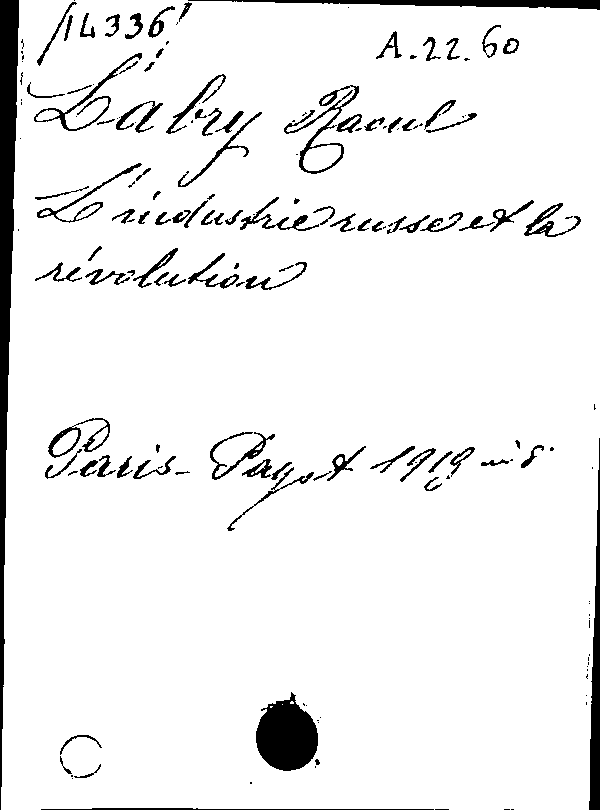 14336
A.22.60
Labry Raoul
L'industrie russe et la
révolution
Paris - Payot 1919 in 8°